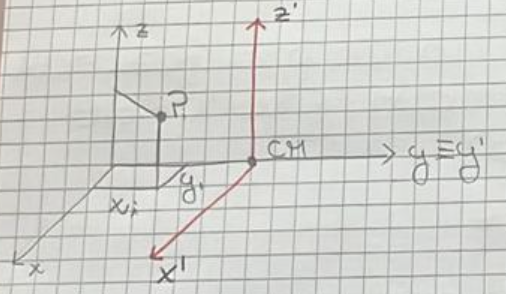 z
z'
Pi
CM
y ≡ y'
yi
xi
x
x'